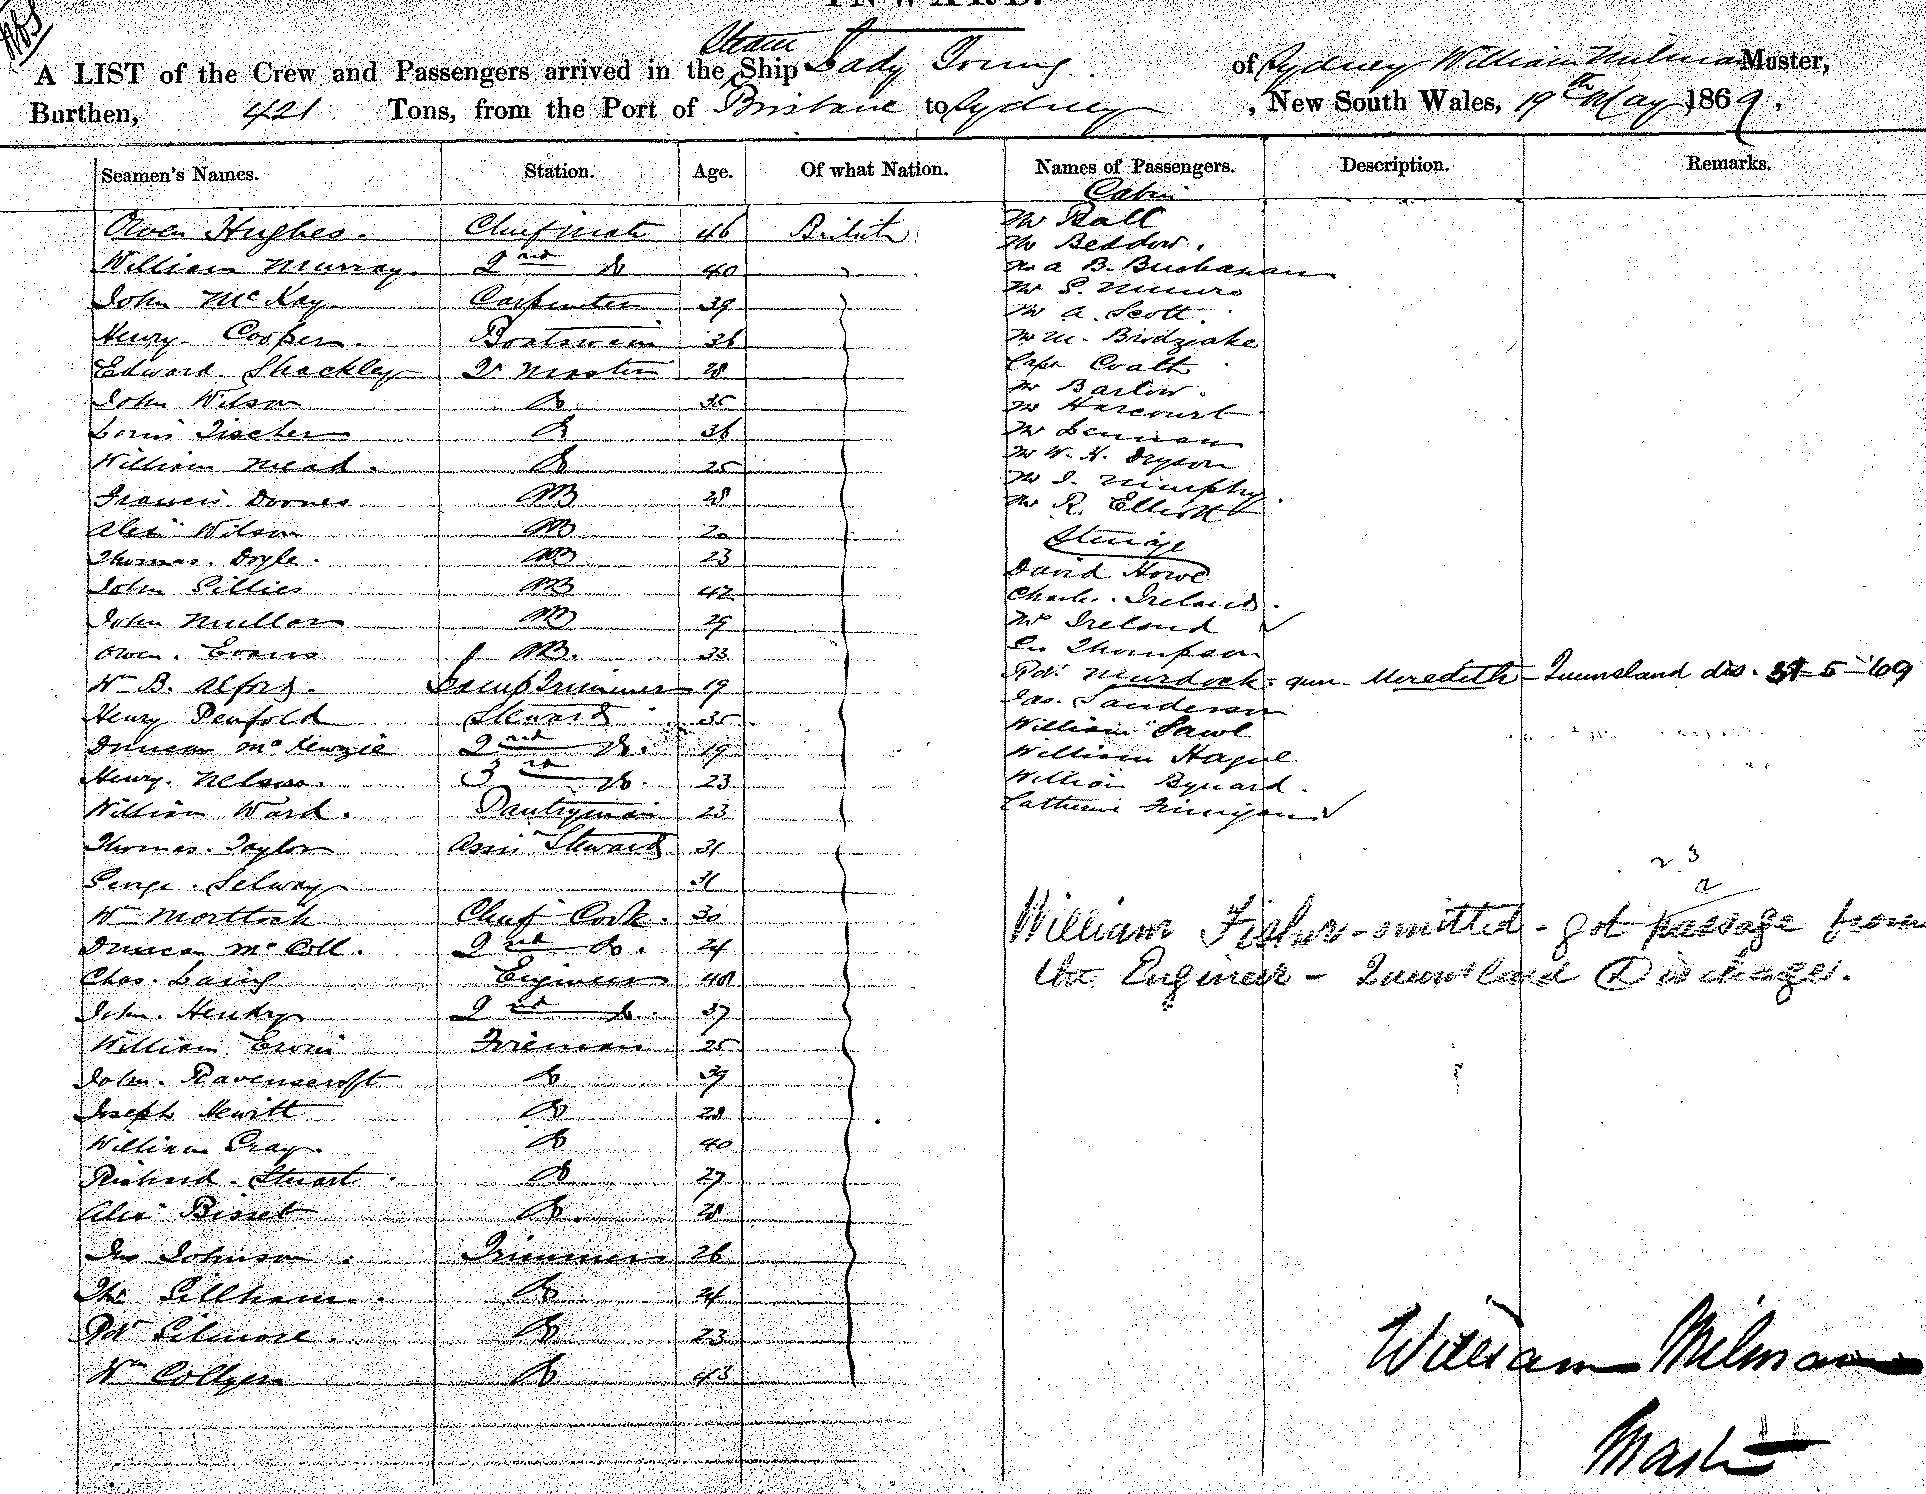 INWARD.
A LIST of the Crew and Passengers arrived in the Steam Ship Lady Young of Sydney William Milman Master,
Burthen, 421 Tons, from the Port of Brisbane to Sydney, New South Wales, 19th May 1869.
Seamen's Names. Station. Age. Of what Nation. Names of Passengers. Description. Remarks.
Cabin
Owen Hughes. Chief mate 46 British Mr Ball
Mr Beddow.
William Murray. 2nd Do 40 Mr A B. Buchanan
John McKay Carpenter 39 Mr S. Munro
Mr A. Scott.
Henry Cooper. Boatswain 36 Mr M. Birdzake
Edward Shackley Qr Master 28 Capt Coath
Mr Barlow.
John Wilson Do 35 Mr Harcourt
Louis Fischer Do 36 Mr Lennan
William Mead. Do 25 Mr W. H. Dryson
Mr J. Murphy.
Francis Downes AB 28 Mr R. Elliott
Alexr Wilson AB 20
Steerage
Thomas. Doyle. AB 23 David Howe
John Gillies AB 42 Charles. Ireland.
John Mullor AB 29 Mrs Ireland
Owen. Evans AB. 33 Thompson
Wm B. Alford. Lamp Trimmer 19 Rd. Murdock - Meredith - Queensland dis. 31-5-69
Henry Penfold Steward 35 Jas. Sanderson
William Sawl
Duncan McKenzie 2nd Do. 19 William Hague
Henry. Nelson. 3rd Do. 23 William Bynard.
William Ward. Pantryman 23 Catherine Finnigan
Thomas. Taylor Assist Steward 31
23
2
George. Selway 31
Wm Mortlock Chief Cook. 30 William Fisher - omitted - got passage from
Duncan McColl. 2nd Do. 24
Chas. Laing Engineer 40 the Engineer - Queensland Discharge.
John. Hendry 2nd Do. 37
William Ervin Fireman 25
John. Ravenscroft Do 39
Joseph Hewitt Do 28
William Gray. Do 40
Richard. Stuart Do 27
Alexr Bisset Do. 28
Jno Johnson. Trimmers 26
Thos Gillham. Do 24
Rd Gilmore. Do 23
Wm Collyer Do 43
William Milman
Master